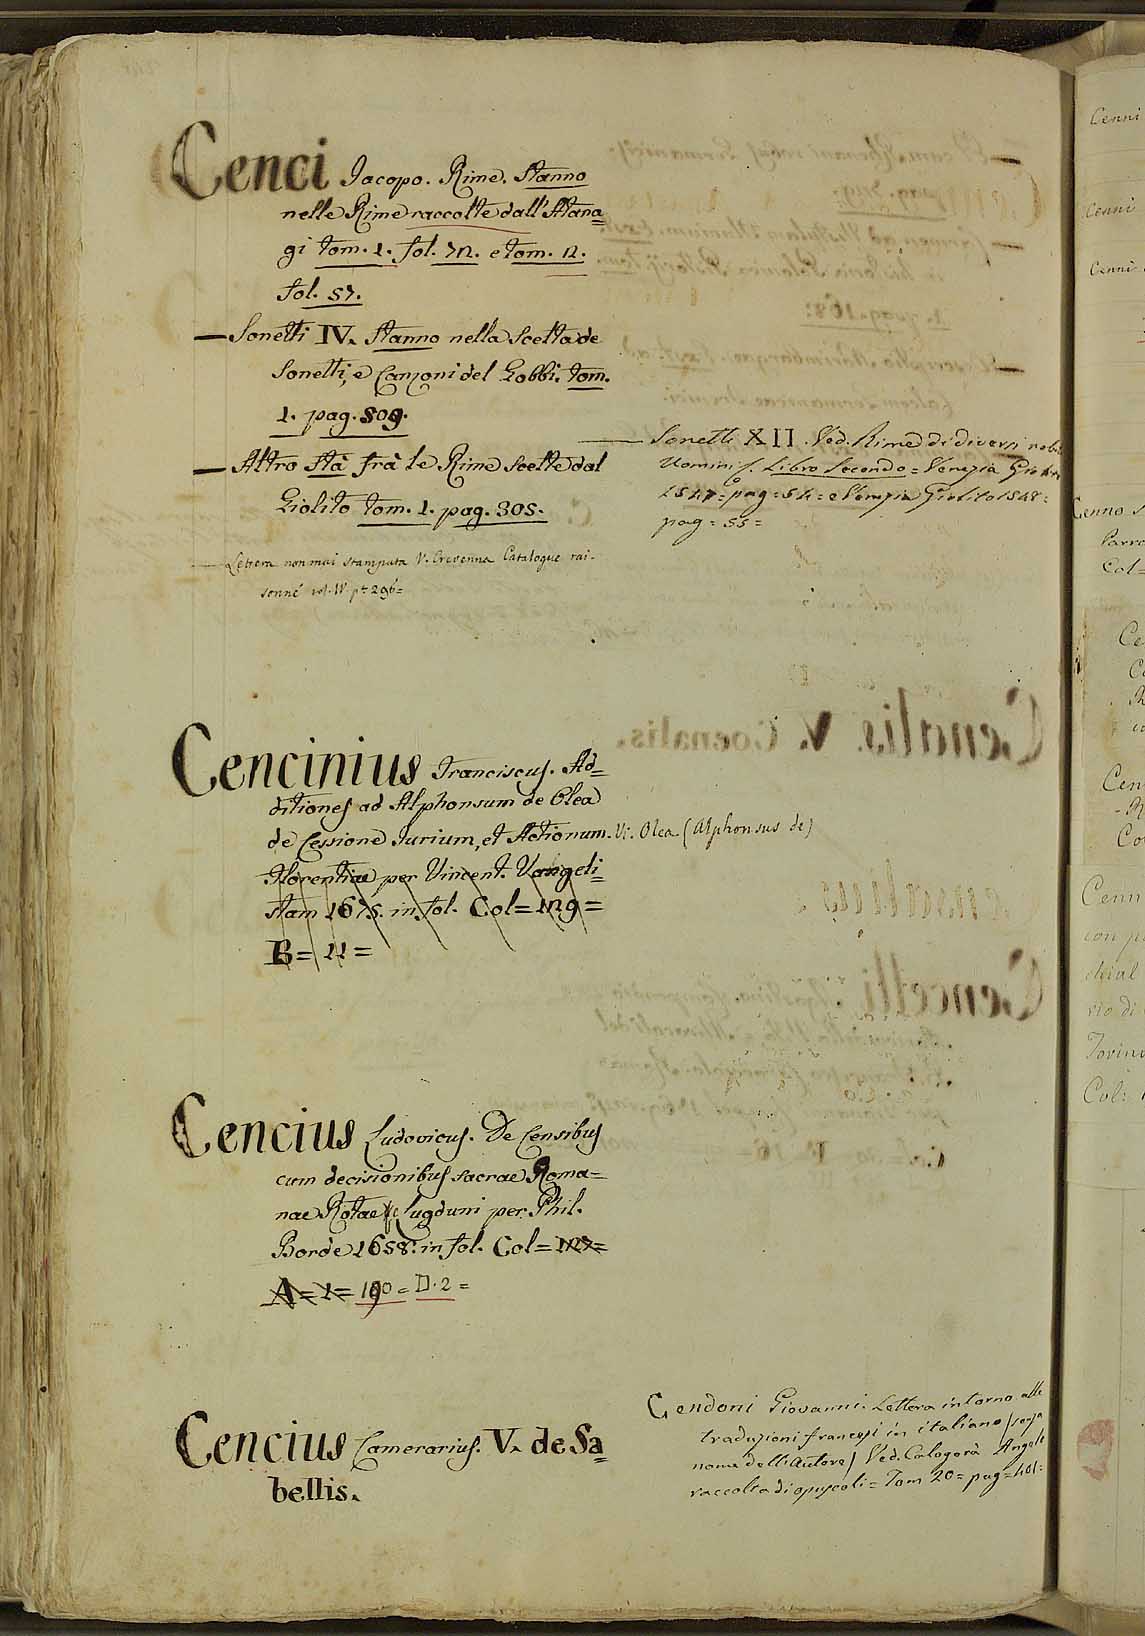 Cenci Iacopo. Rime. Stanno
nelle Rime raccolte dall'Atana=
gi tom. 1. fol. 72. e tom. 2.
fol. 57.
— Sonetti IV. Stanno nella Scelta de
Sonetti, e Canzoni del Gobbi. tom.
1. pag. 809.
— Altro Stà frà le Rime Scelte dal
Giolito tom. 1. pag. 305.
— Lettera non mai stampata V. Crevenna Catalogue rai-
sonné vol. IV. pt 296=
— Sonetti XII. Ved. Rime di diversi nobi
Uomini &. Libro Secondo = Venezia Giolito
1547 = pag = 54 = e Venezia Giolito 1548 =
pag = 55 =
Cencinius Franciscus. Ad=
ditiones ad Alphonsum de Olea
de Cessione Iurium, et Actionum. V. Olea (Alphonsus de)
Florentiae per Vincent. Vangeli=
stam 1675. in fol. Col = 129 =
B = 11 =
Cencius Ludovicus. De Censibus
cum decisionibus sacrae Roma=
nae Rotae &c Lugduni per Phil.
Borde 1658. in fol. Col = 127 =
A = 1 = 190 = D. 2 =
Cencius Camerarius. V. de Sa=
bellis.
Cendoni Giovanni. Lettera intorno alle
traduzioni francesi in italiano (senza
nome dell'Autore) Ved. Calogerà Angelo
raccolta di opuscoli = Tom 20 = pag = 401 =
Cenni
Cenni
Cenni
Cenno
Parro
Col =
Cenn
Col: